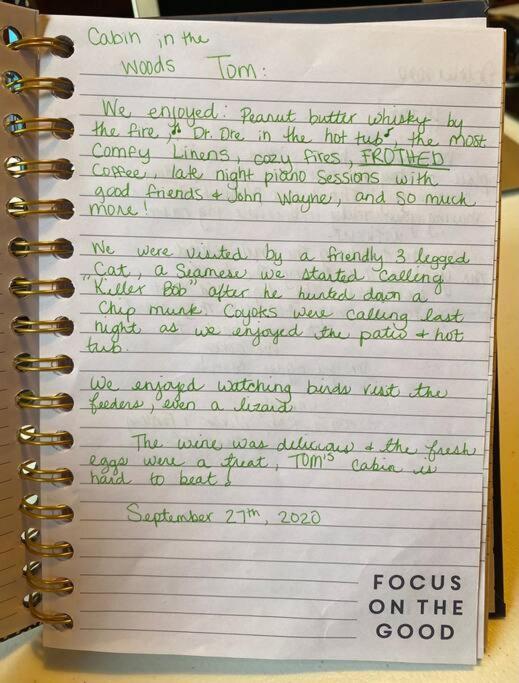 Cabin in the
woods Tom:
We enjoyed: Peanut butter whisky by
the fire, ♫ Dr. Dre in the hot tub ♪, the most
Comfy Linens, cozy fires, FROTHED
Coffee, late night piano sessions with
good friends & John Wayne, and so much
more!
We were visited by a friendly 3 legged
Cat, a Seamese we started calling
"Killer Bob" after he hunted down a
Chip munk. Coyoks were calling last
night as we enjoyed the patio & hot
tub.
We enjoyed watching birds visit the
feeders, even a lizard
The wine was delicious & the fresh
eggs were a treat, TOM'S cabin is
hard to beat!
September 27th, 2020
FOCUS
ON THE
GOOD